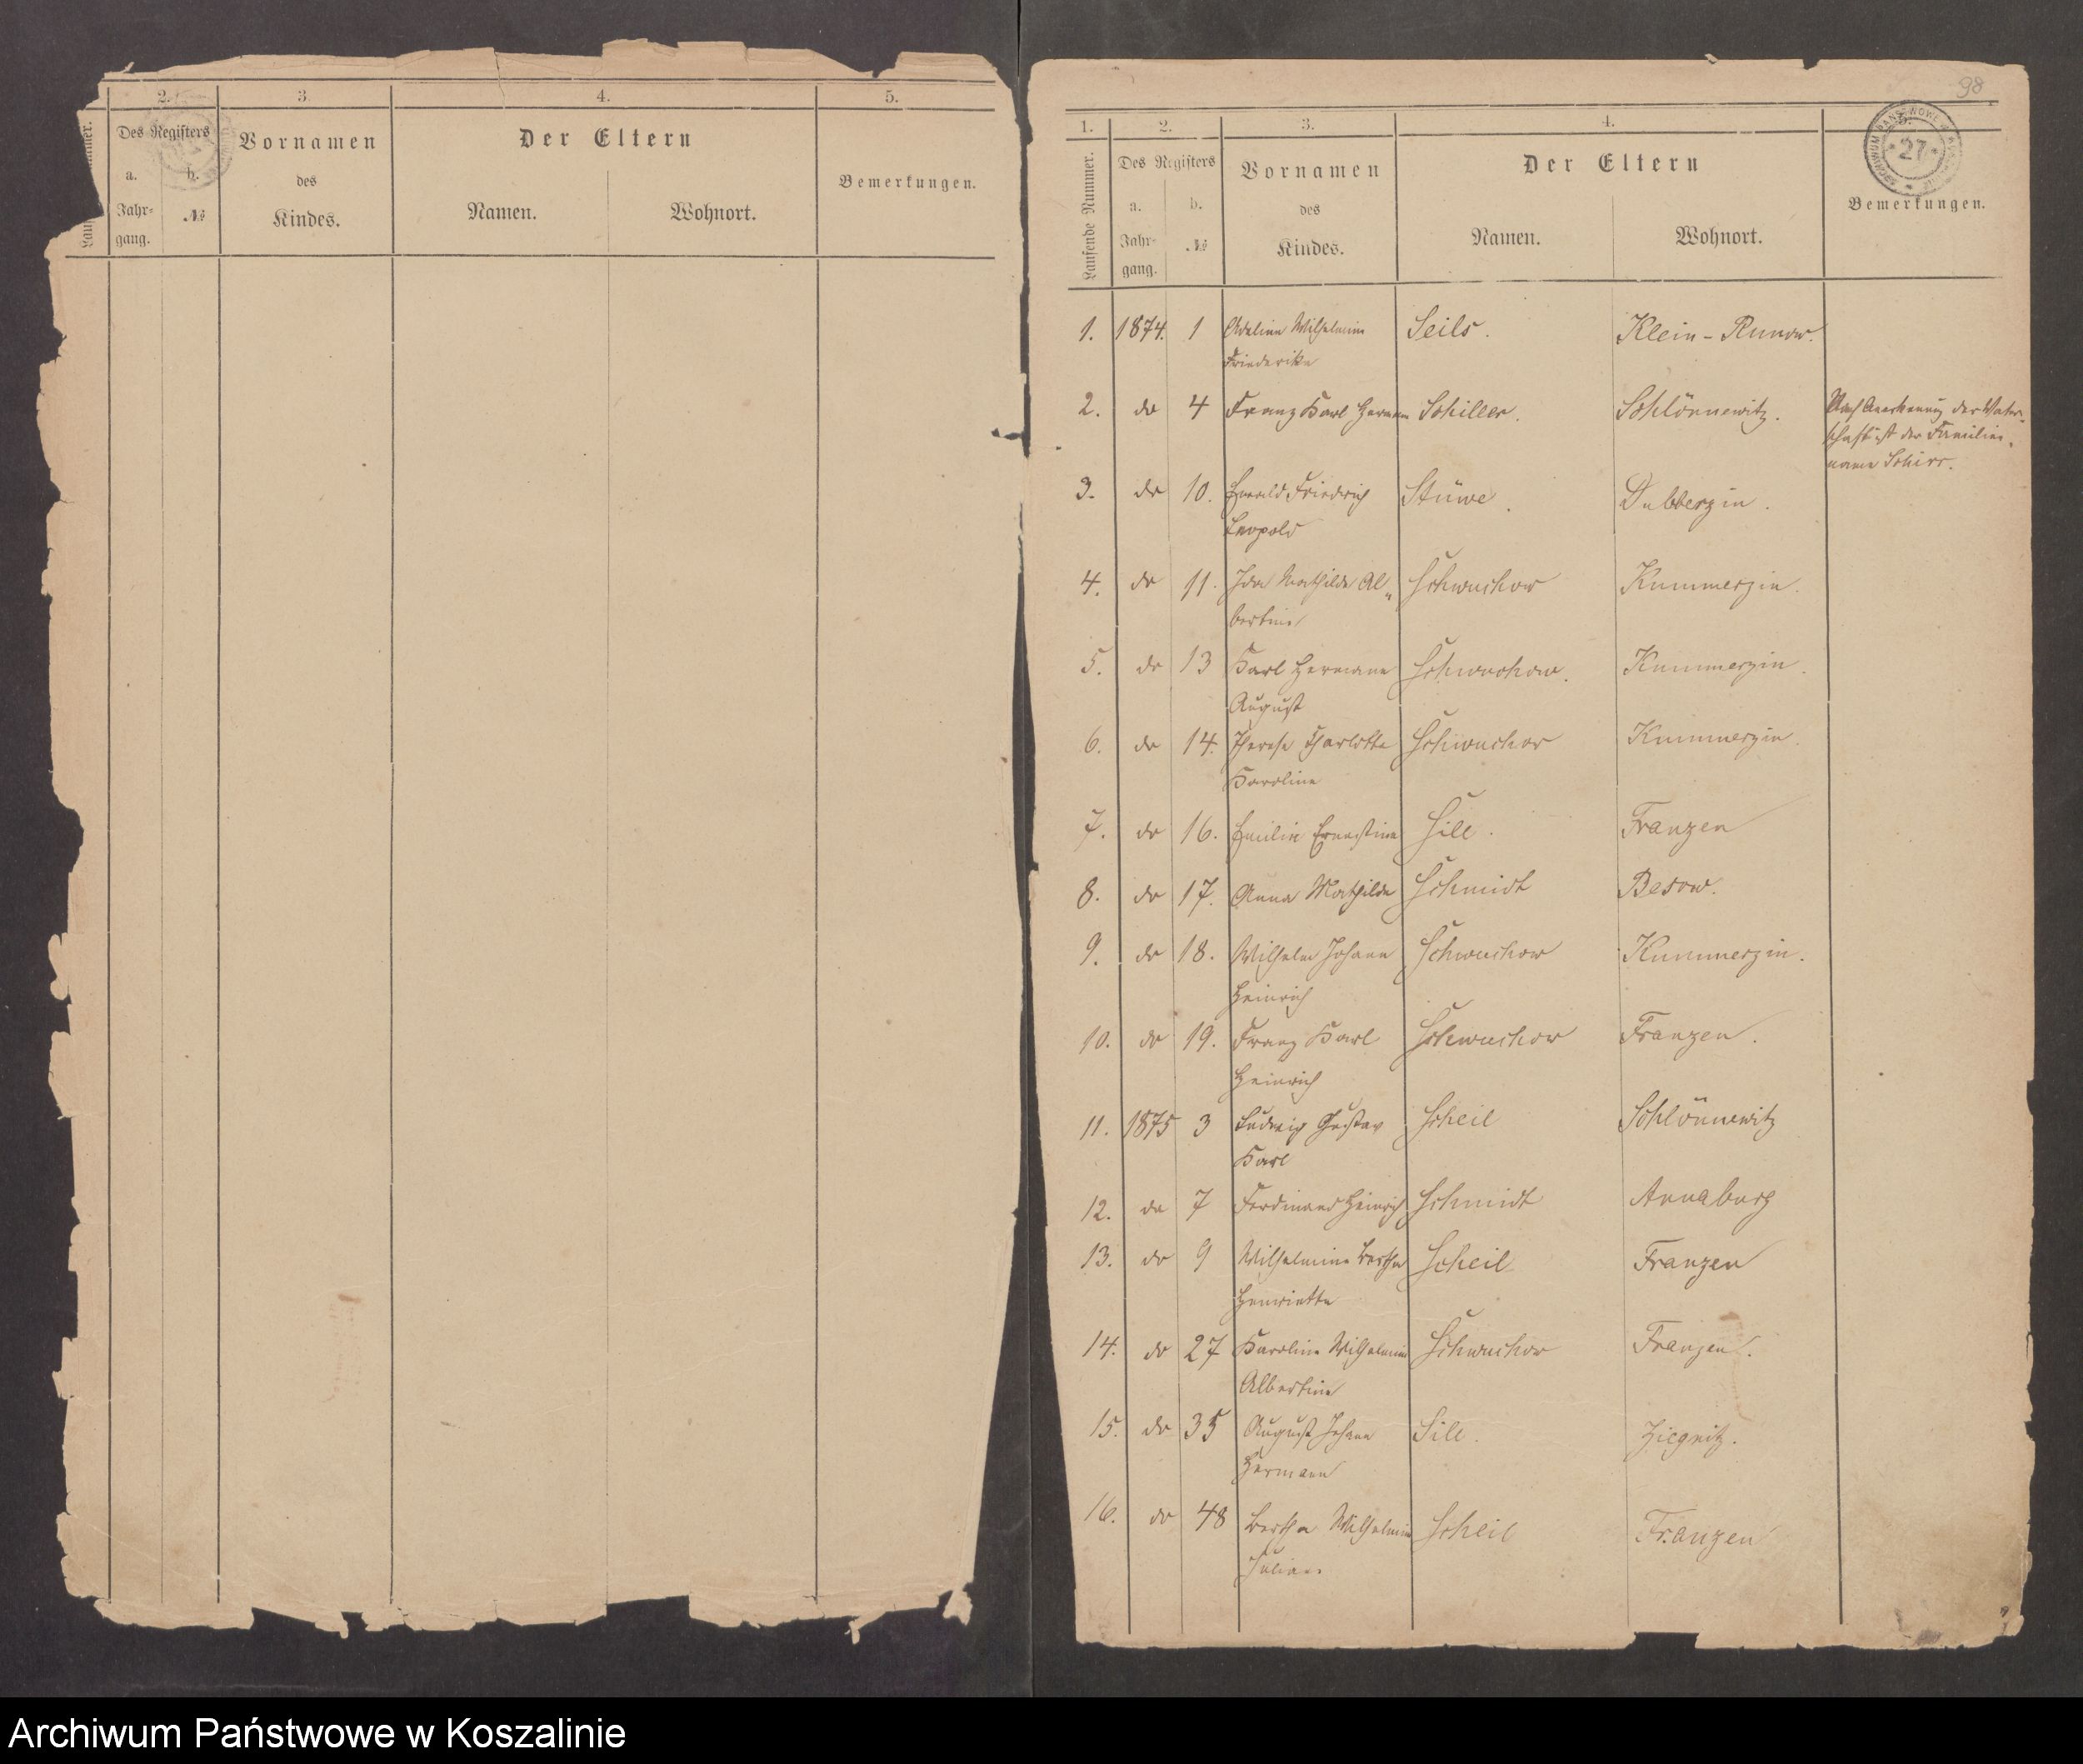 2. 3. 4. 5.
Des Registers
a. b.
Jahr-
gang.
№
Vornamen
des
Kindes.
Der Eltern
Namen. Wohnort.
Bemerkungen.
98
ARCHIWUM PAŃSTWOWE
* 27 *
1. 2. 3. 4.
Laufende Nummer.
Des Registers
a. b.
Jahr-
gang.
№
Vornamen
des
Kindes.
Der Eltern
Namen. Wohnort.
Bemerkungen.
1. 1874. 1 Adeline Wilhelmine Seils. Klein-Runow.
Friederike
2. do 4 Franz Karl Hermann Schiller. Schlönnewitz. Nach Anerkennung der Vater-
schaft ist der Familien-
name Schirr.
3. do 10. Ewald Friedrich Stüwe. Dubberzin.
Leopold
4. do 11. Ida Mathilde Al- Schwuchow Kummerzin.
bertine
5. do 13 Karl Hermann Schwuchow. Kummerzin.
August
6. do 14. Therese Charlotte Schwuchow Kummerzin.
Karoline
7. do 16. Emilie Ernestine Sill. Franzen
8. do 17. Anna Mathilde Schmidt Besow.
9. do 18. Wilhelm Johann Schwuchow Kummerzin.
Heinrich
10. do 19. Franz Karl Schwuchow Franzen.
Heinrich
11. 1875 3 Ludwig Gustav Scheil Schlönnewitz
Karl
12. do 7 Ferdinand Heinrich Schmidt Annaburg
13. do 9 Wilhelmine Bertha Scheil Franzen
Henriette
14. do 27 Karoline Wilhelmine Schwuchow Franzen.
Albertine
15. do 35 August Johann Sill. Ziegnitz.
Hermann
16. do 48 Bertha Wilhelmine Scheil Franzen
Juliane
Archiwum Państwowe w Koszalinie